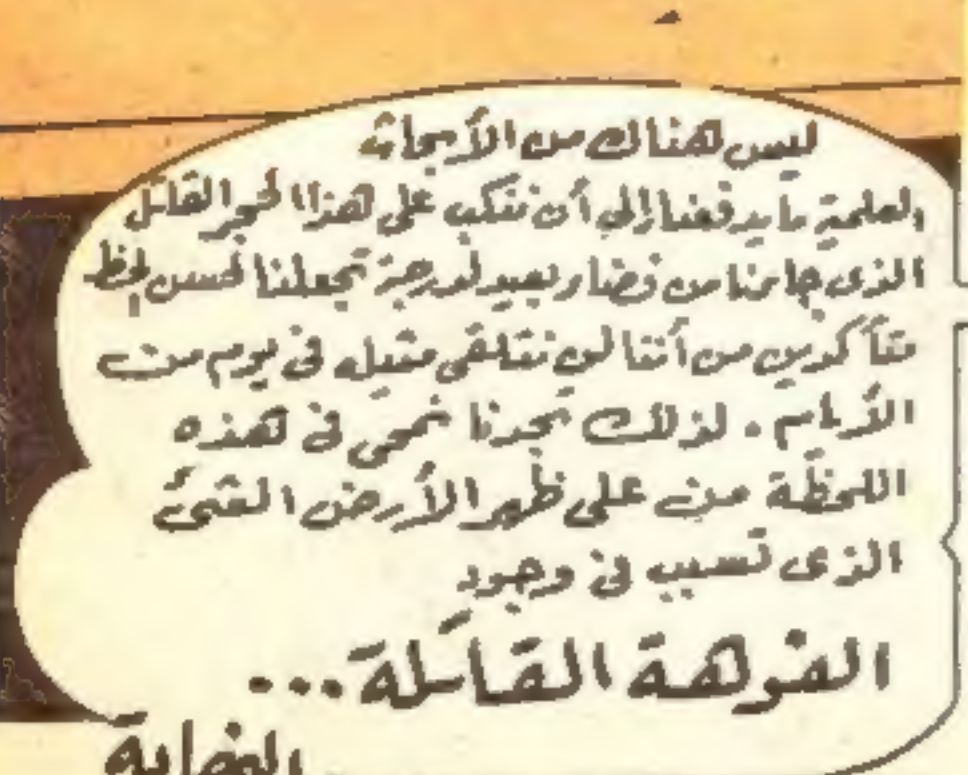 ليس هناك من الأبحاث
العلمية ما يدفعنا إلى أن ننكب على هذا الحجر القاتل
الذى جاءنا من فضاء بعيد لدرجة تجعلنا لحسن الحظ
متأكدين من أننا لن نتلقى مثيله فى يوم من
الأيام. لذلك تجدنا نمحى فى هذه
اللحظة من على ظهر الأرض الشئ
الذى تسبب فى وجود
الفوهة القاتلة...
النهاية